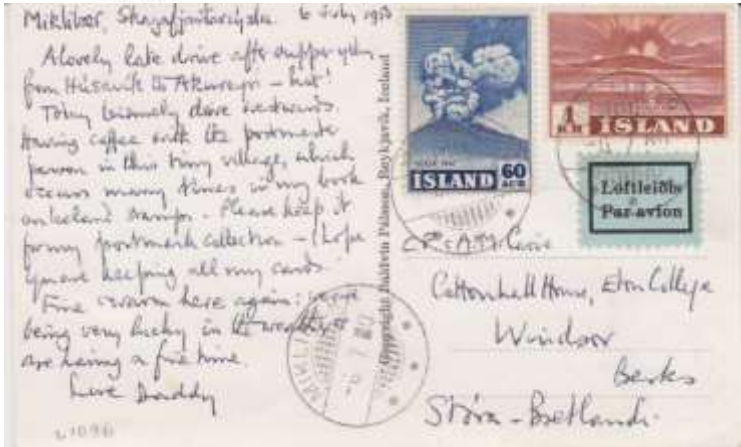 Miklibær, Skagafjarðarsýsla 6 July 19
A lovely late drive after supper
from Húsavík to Akureyri – but
Today leisurely drove westwards.
Having coffee with the postmaster
person in this tiny village, which
occurs many times in my book
on Iceland stamps. Please keep it
for my postmark collection – I hope
you are keeping all my cards.
Fine & warm here again: we're
being very lucky in the weather &
are having a fine time.
Love Daddy
L1096
Copyright Baldvin Pálsson, Reykjavík, Iceland
60
ÍSLAND AUR
1
KR ÍSLAND
Loftleiðis
Par avion
MIKLIB
6.7.
Cottonhall House, Eton College
Windsor
Berks
Stóra-Bretland.